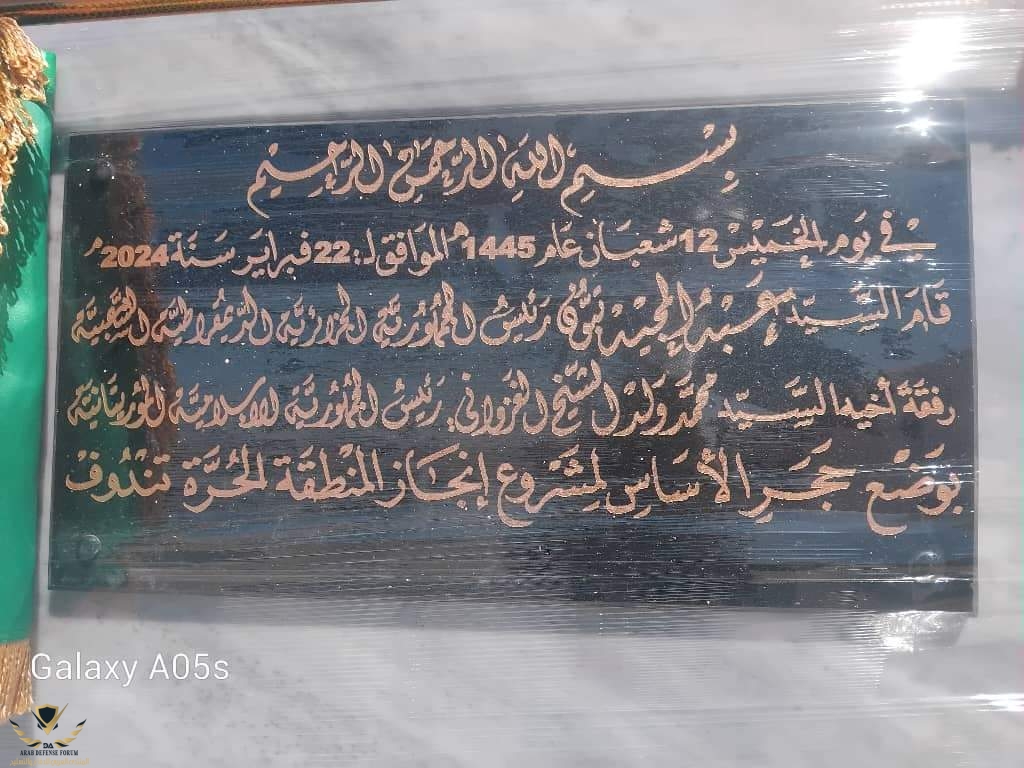 بِسْمِ اللهِ الرَّحْمٰنِ الرَّحِيمِ
في يَوم الخَمِيْسْ 12 شعبَان عَام 1445هـ الموَافق لـ: 22 فبرايَر سَنَة 2024م
قَامَ السَّيِّد عَبْدُ المَجِيد تَبُّون رَئيسُ الجُمْهُوريَّة الجزائريَّة الديمُقراطيَّة الشَّعبيَّة
رفقَة أخيه السَّيِّد محمَّد وَلد الشَّيخ الغَزواني رَئيسُ الجُمْهُوريَّة الاسلاميَّة المُوريتَانيَّة
بوَضْع حَجَر الأسَاسِ لمِشْرُوع إنجَاز المَنْطقَة الحُرَّة تَنْدُوفْ
Galaxy A05s
DA
ARAB DEFENSE FORUM